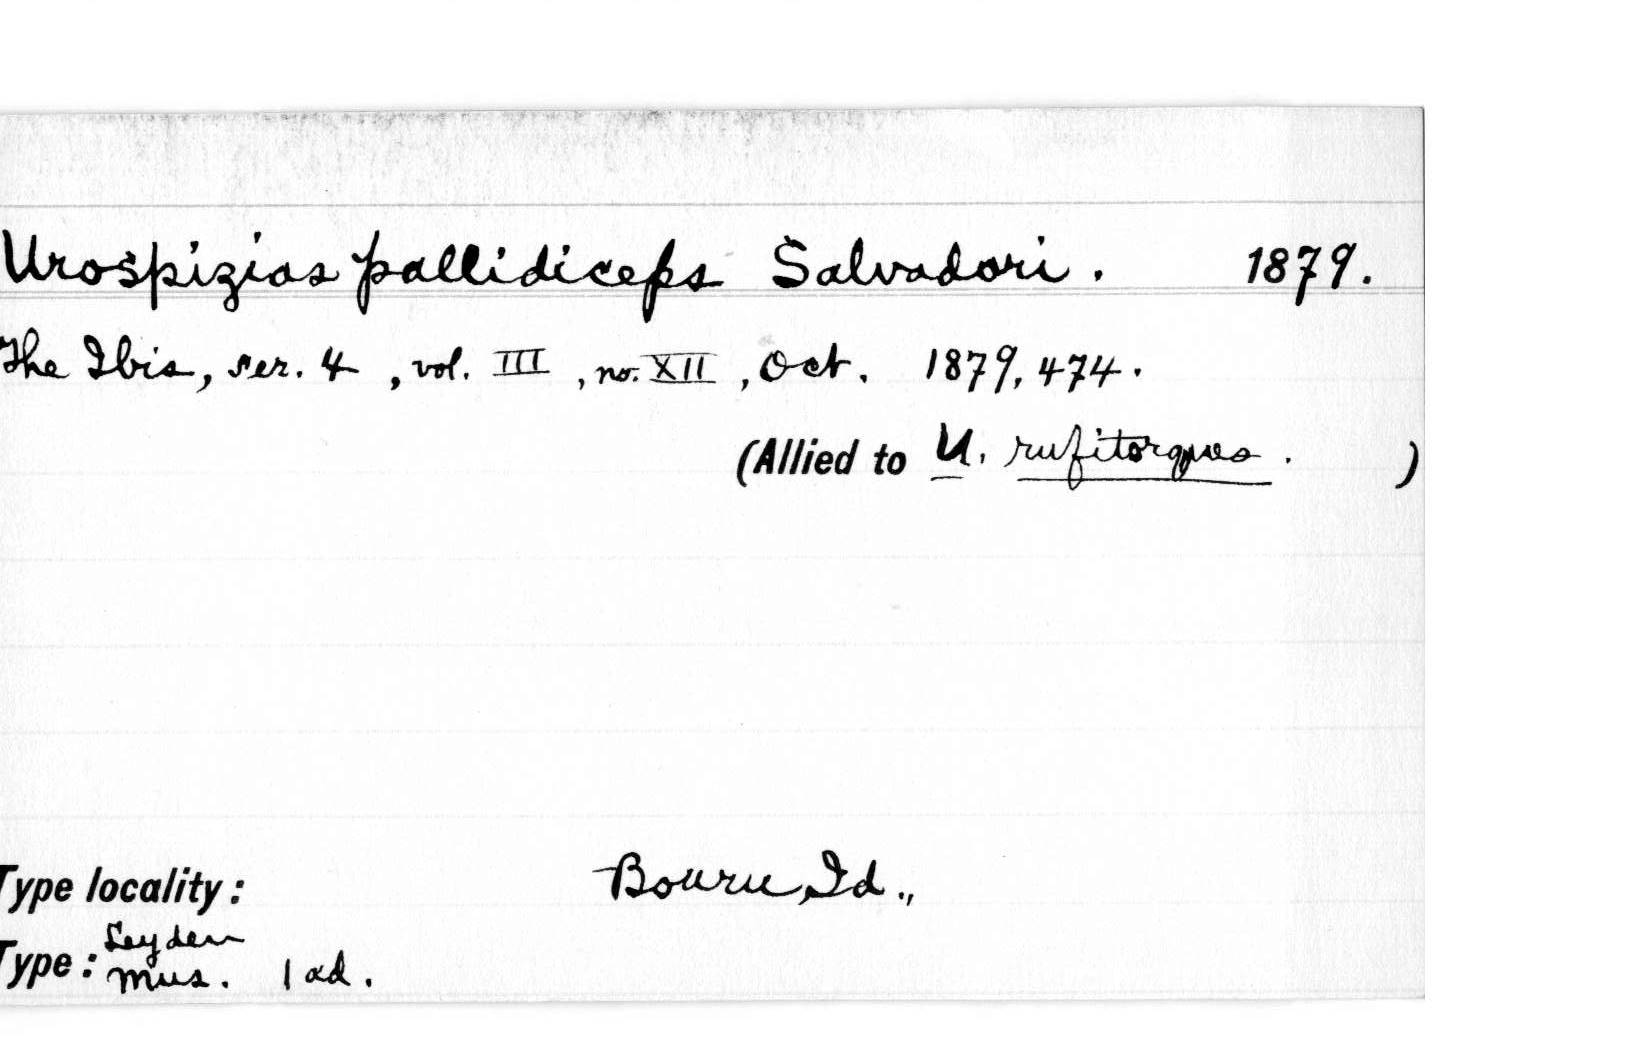 Urospizias pallidiceps Salvadori. 1879.
The Ibis, ser. 4, vol. III, no. XII, Oct. 1879, 474.
(Allied to U. rufitorques. )
Type locality: Bouru, Id.,
Type: Leyden
Mus. 1 ad.